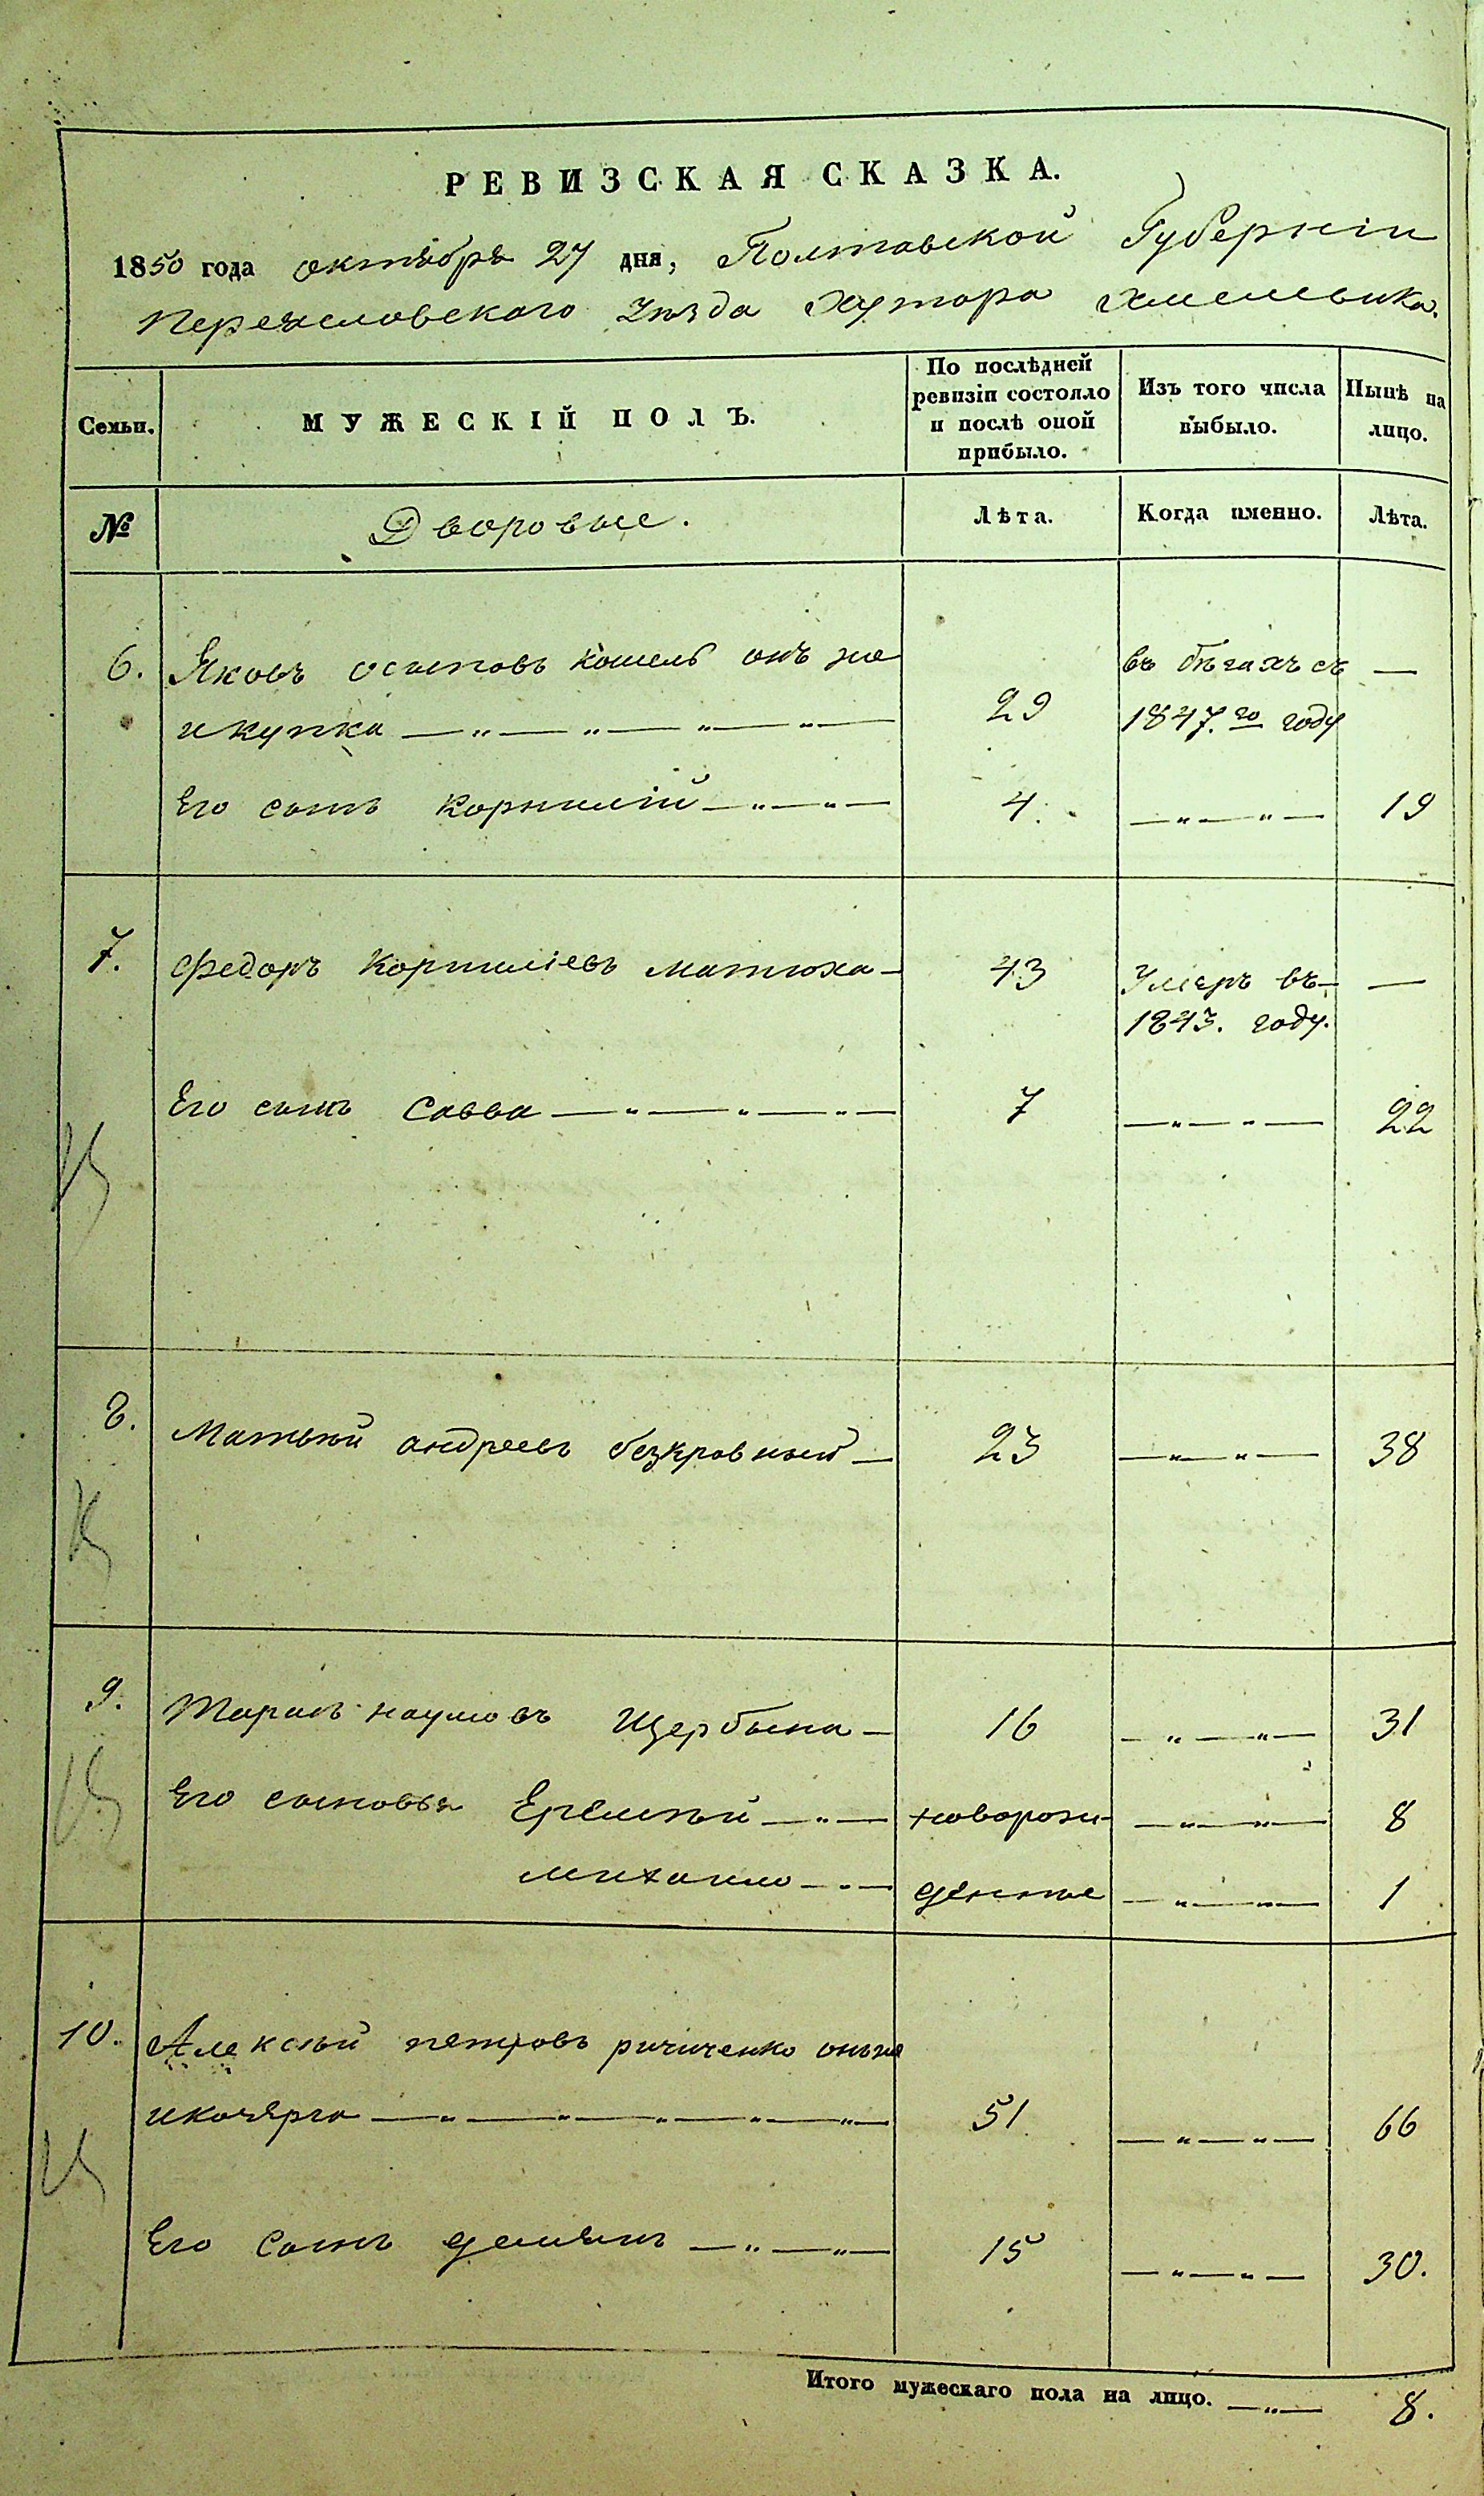 РЕВИЗСКАЯ СКАЗКА.
1850 года октября 27 дня, Полтавской Губерніи
Переясловскаго Уѣзда Хутора Хмелевика.
Семьи. МУЖЕСКІЙ ПОЛЪ. По послѣдней ревизіи состояло и послѣ оной прибыло. Изъ того числа выбыло. Нынѣ на лицо.
№ Дворовые. Лѣта. Когда именно. Лѣта.
6. Яковъ осиповъ кошель онъ же въ бѣгахъ съ —
и купка 29 1847.го году
Его сынъ Корнилій 4. 19
7. Федоръ Корниліевъ матюха 43 Умеръ въ —
1843. году.
Его сынъ Савва 7 22
8. Матвѣй андреевъ безкровный 23 38
9. Тарасъ наумовъ Щербина 16 31
Его сыновья Еремѣй новорож- 8
михаило денные 1
10. Алексѣй петровъ ричиченко онъже
и кочерга 51 66
Его Сынъ демьянъ 15 30.
Итого мужескаго пола на лицо. 8.